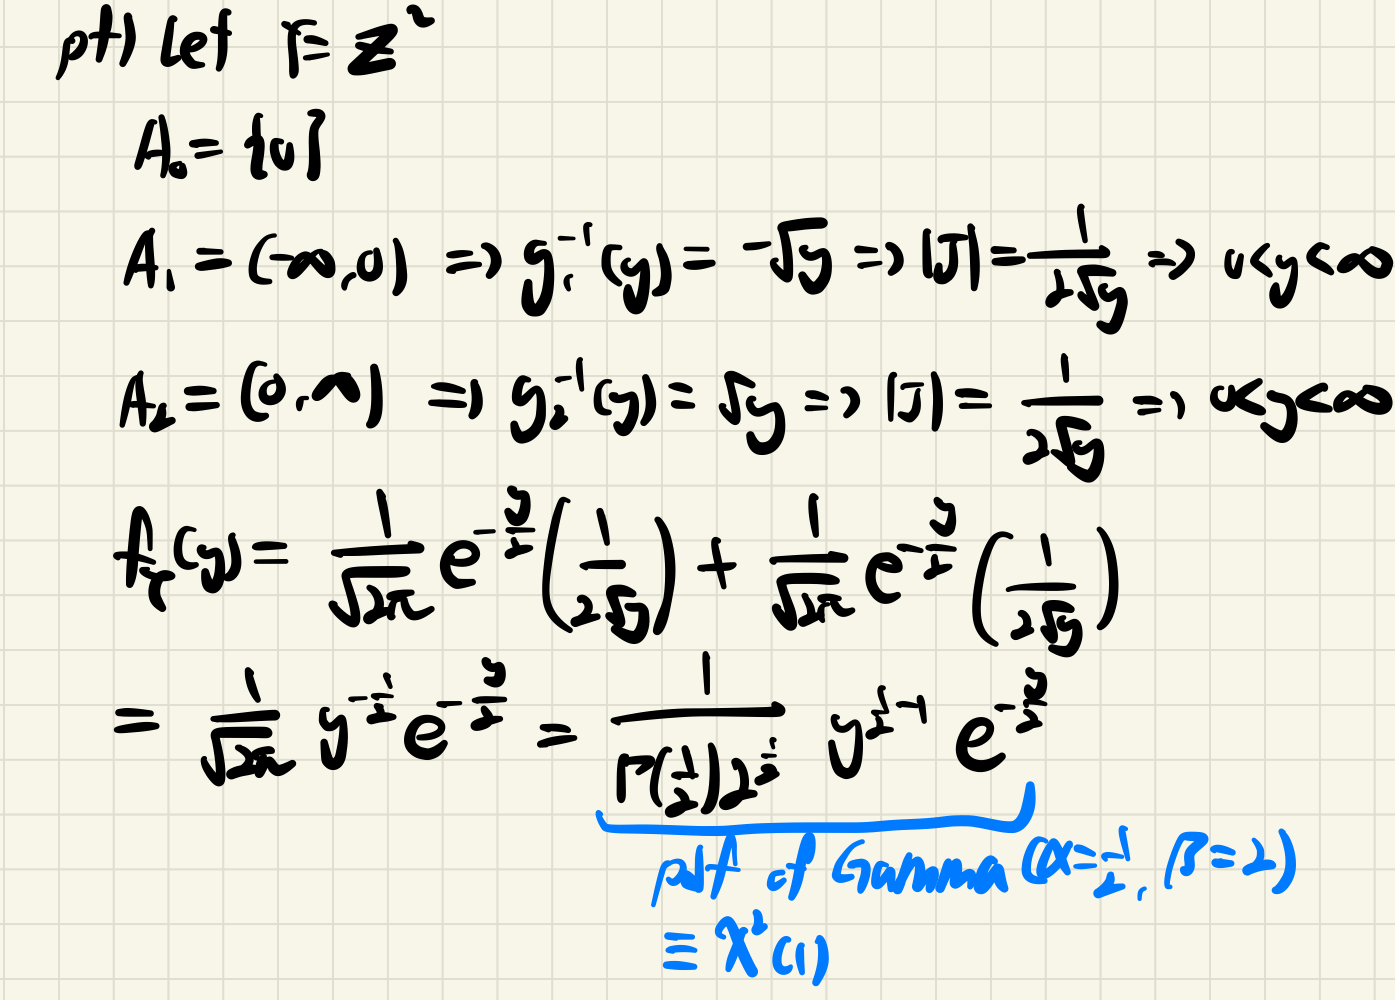 pf) Let Y = Z²
A₀ = {0}
A₁ = (-∞, 0) => g₁⁻¹(y) = -√y => |J| = 1/(2√y) => 0<y<∞
A₂ = (0, ∞) => g₂⁻¹(y) = √y => |J| = 1/(2√y) => 0<y<∞
f_Y(y) = 1/√(2π) e^(-y/2) (1/(2√y)) + 1/√(2π) e^(-y/2) (1/(2√y))
= 1/√(2π) y^(-1/2) e^(-y/2) = 1/(Γ(1/2) 2^(1/2)) y^(1/2-1) e^(-y/2)
pdf of Gamma (α=1/2, β=2)
≡ χ²(1)